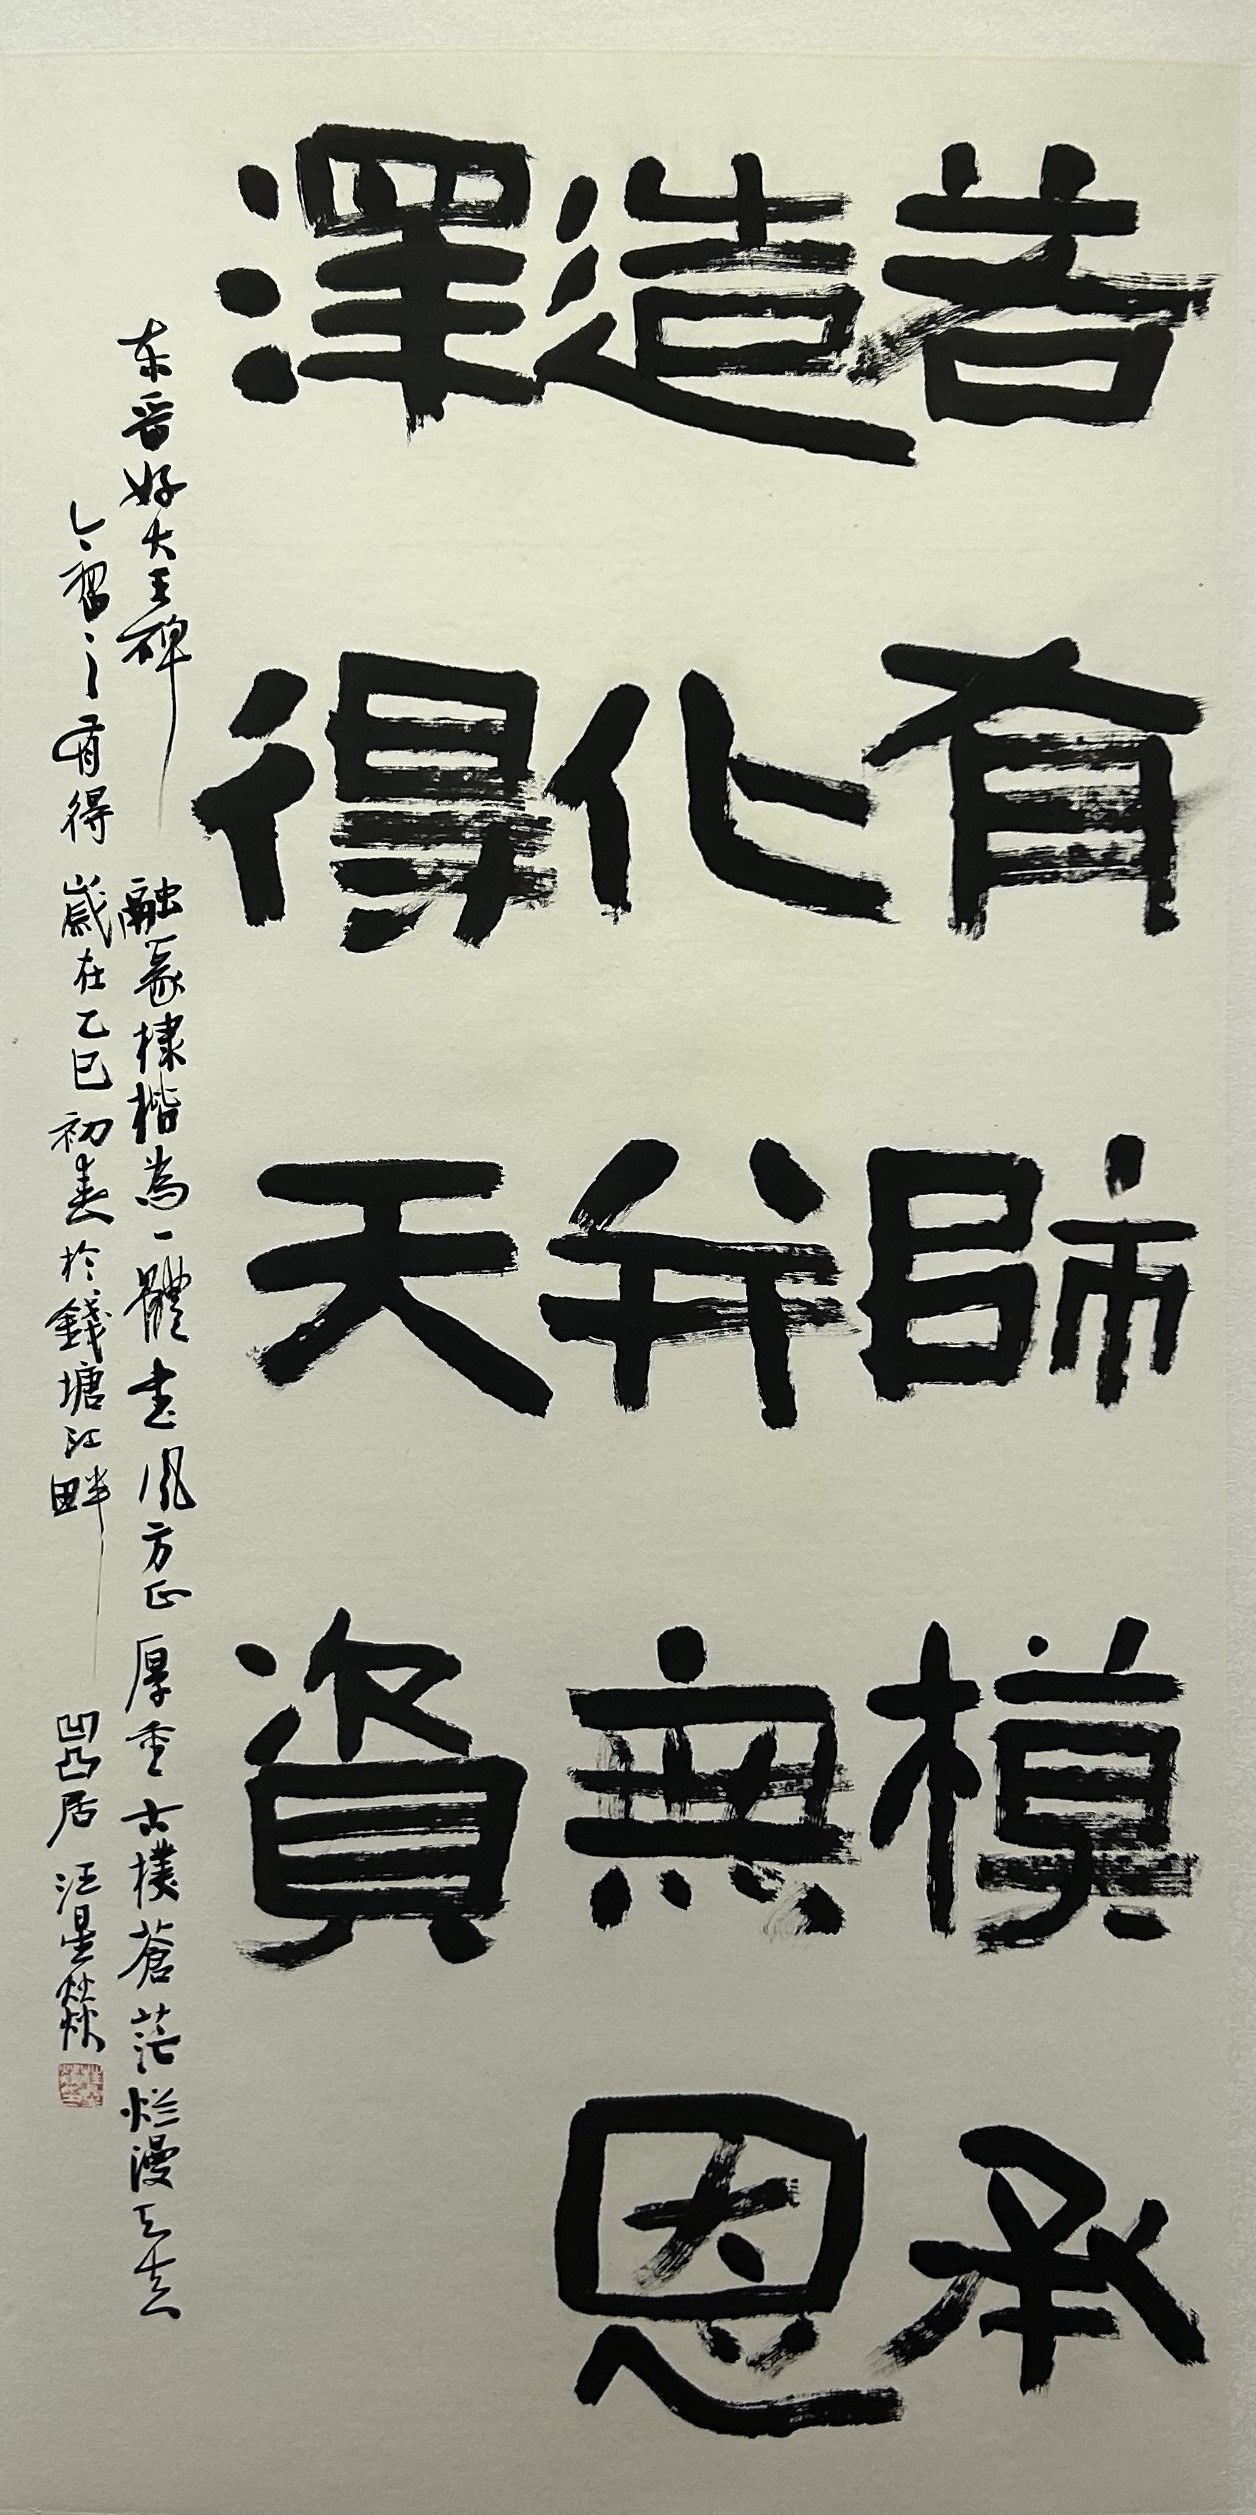 若有師模承
造化并無恩
澤得天資
东晋好大王碑 融篆棣楷為一體 书风方正厚重古樸蒼茫烂漫
今習之有得 歲在乙巳初春於錢塘江畔 凹凸居 汪星燚